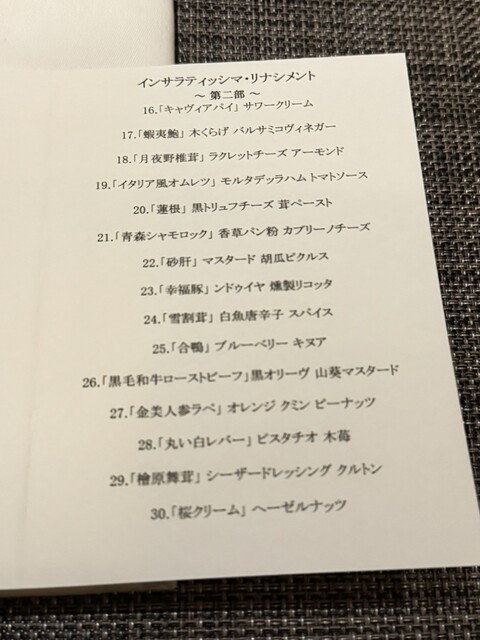 インサラティッシマ・リナシメント
～ 第二部 ～
16.「キャヴィアパイ」 サワークリーム
17.「蝦夷鮑」 木くらげ バルサミコヴィネガー
18.「月夜野椎茸」 ラクレットチーズ アーモンド
19.「イタリア風オムレツ」 モルタデッラハム トマトソース
20.「蓮根」 黒トリュフチーズ 茸ペースト
21.「青森シャモロック」 香草パン粉 カプリーノチーズ
22.「砂肝」 マスタード 胡瓜ピクルス
23.「幸福豚」 ンドゥイヤ 燻製リコッタ
24.「雪割茸」 白魚唐辛子 スパイス
25.「合鴨」 ブルーベリー キヌア
26.「黒毛和牛ローストビーフ」黒オリーヴ 山葵マスタード
27.「金美人参ラペ」 オレンジ クミン ピーナッツ
28.「丸い白レバー」 ピスタチオ 木苺
29.「檜原舞茸」 シーザードレッシング クルトン
30.「桜クリーム」 ヘーゼルナッツ